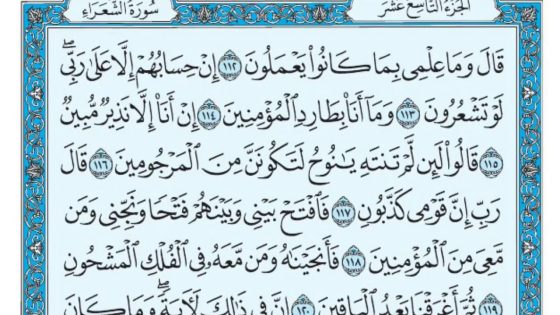 الجزء التاسع عشر
سورة الشعراء
قَالَ وَمَا عِلْمِى بِمَا كَانُوا۟ يَعْمَلُونَ ١١٢ إِنْ حِسَابُهُمْ إِلَّا عَلَىٰ رَبِّىۖ
لَوْ تَشْعُرُونَ ١١٣ وَمَآ أَنَا۠ بِطَارِدِ ٱلْمُؤْمِنِينَ ١١٤ إِنْ أَنَا۠ إِلَّا نَذِيرٌ مُّبِينٌ
١١٥ قَالُوا۟ لَئِن لَّمْ تَنتَهِ يَٰنُوحُ لَتَكُونَنَّ مِنَ ٱلْمَرْجُومِينَ ١١٦ قَالَ
رَبِّ إِنَّ قَوْمِى كَذَّبُونِ ١١٧ فَٱفْتَحْ بَيْنِى وَبَيْنَهُمْ فَتْحًا وَنَجِّنِى وَمَن
مَّعِىَ مِنَ ٱلْمُؤْمِنِينَ ١١٨ فَأَنجَيْنَٰهُ وَمَن مَّعَهُۥ فِى ٱلْفُلْكِ ٱلْمَشْحُونِ
١١٩ ثُمَّ أَغْرَقْنَا بَعْدُ ٱلْبَاقِينَ ١٢٠ إِنَّ فِى ذَٰلِكَ لَـَٔايَةًۖ وَمَا كَانَ